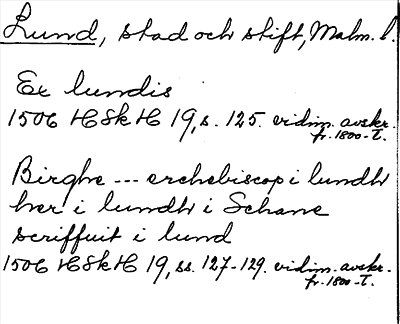 Lund, stad och stift, Malm. l.
Ex lundis
1506 HSkH 19, s. 125. vidim. avskr.
fr. 1800-t.
Birghe --- erchebiscop i lundh
her i lundh i Schane
scriffuit i lund
1506 HSkH 19, ss. 127-129. vidim. avskr.
fr. 1800-t.